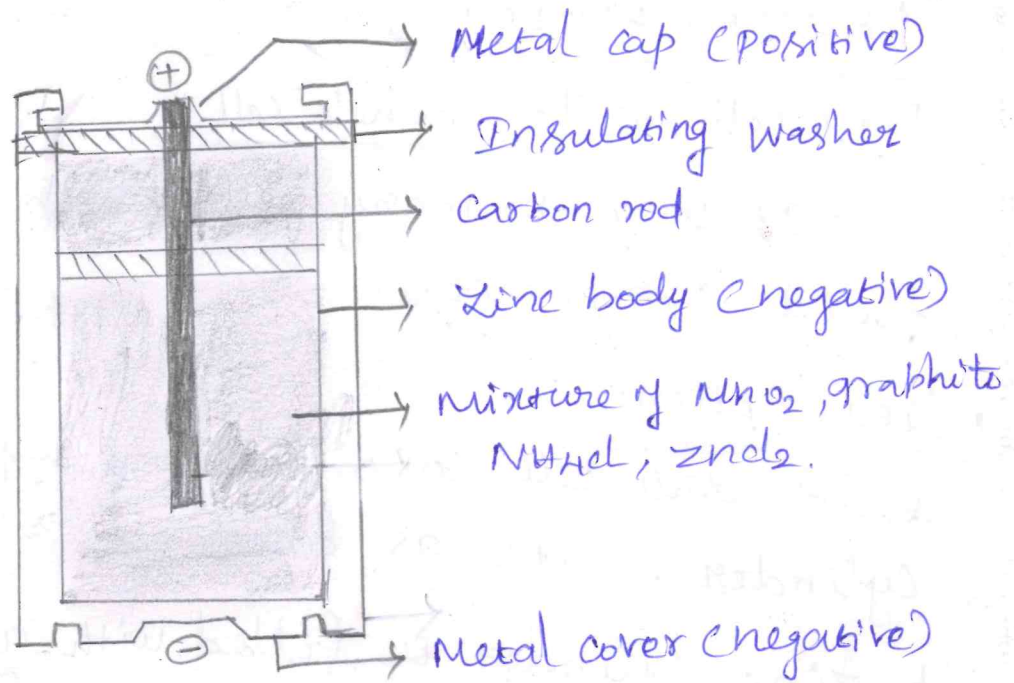 +
Metal cap (Positive)
Insulating washer
Carbon rod
Zinc body (negative)
Mixture of MnO2, graphite
NH4Cl, ZnCl2.
Metal cover (negative)
-